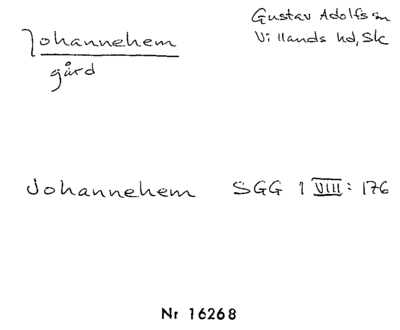 Johannehem
gård
Gustav Adolfs sn
Villands hd, Sk
Johannehem SGG 1 VIII: 176
Nr 16268